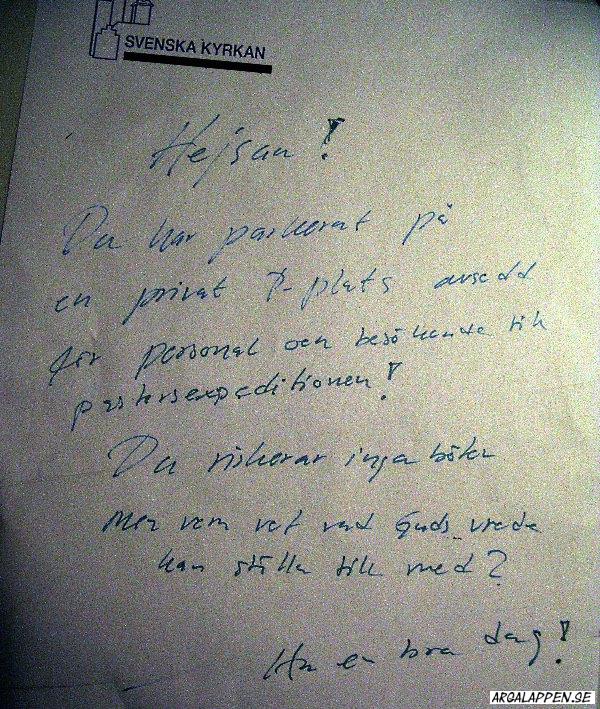 SVENSKA KYRKAN
Hejsan!
Du har parkerat på
en privat P-plats avsedd
för personal och besökande till
pastorsexpeditionen!
Du riskerar inga böter
Men vem vet vad Guds vrede
kan ställa till med?
Ha en bra dag!
ARGALAPPEN.SE